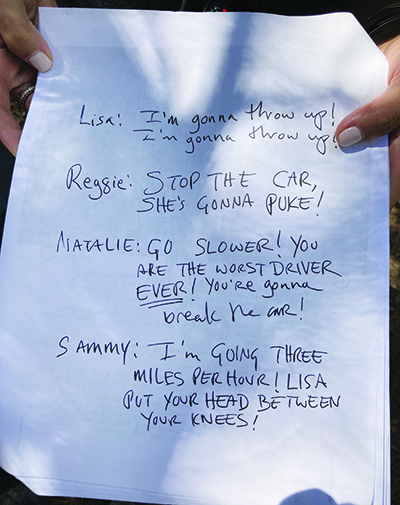 Lisa: I'm gonna throw up!
I'm gonna throw up!
Reggie: STOP THE CAR,
SHE'S GONNA PUKE!
NATALIE: GO SLOWER! YOU
ARE THE WORST DRIVER
EVER! You're gonna
break the car!
SAMMY: I'm GOING THREE
MILES PER HOUR! LISA
PUT YOUR HEAD BETWEEN
YOUR KNEES!